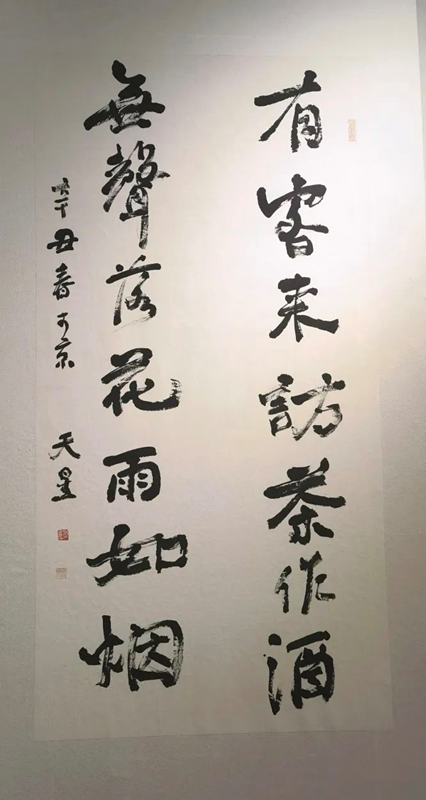 有客来訪茶作酒
無聲落花雨如烟
辛丑春于京 天星